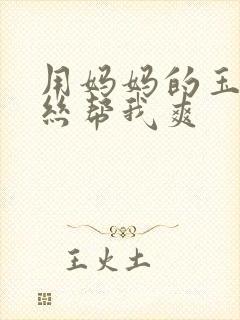 用妈妈的玉
丝帮我爽
王火土